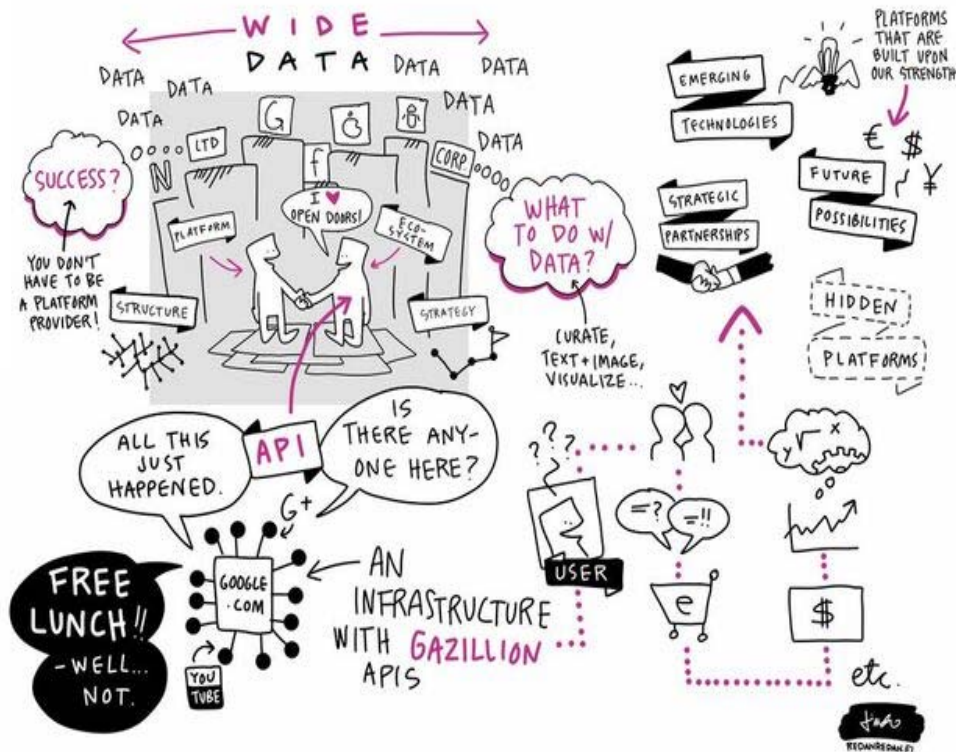 WIDE
DATA
DATA
DATA
DATA
DATA
DATA
DATA
DATA
DATA
SUCCESS?
YOU DON'T
HAVE TO BE
A PLATFORM
PROVIDER!
N
LTD
G
f
CORP.
I ♥
OPEN DOORS!
PLATFORM
ECO-
SYSTEM
STRUCTURE
STRATEGY
WHAT
TO DO W/
DATA?
CURATE,
TEXT + IMAGE,
VISUALIZE...
EMERGING
TECHNOLOGIES
PLATFORMS
THAT ARE
BUILT UPON
OUR STRENGTH
€ $ ¥
FUTURE
POSSIBILITIES
STRATEGIC
PARTNERSHIPS
HIDDEN
PLATFORMS
ALL THIS
JUST
HAPPENED.
API
IS
THERE ANY-
ONE HERE?
G+
GOOGLE
.COM
YOU
TUBE
FREE
LUNCH!!
-WELL...
NOT.
AN
INFRASTRUCTURE
WITH GAZILLION
APIS
? ? ? ?
USER
=?
=!!
e
y √ x
$
etc.